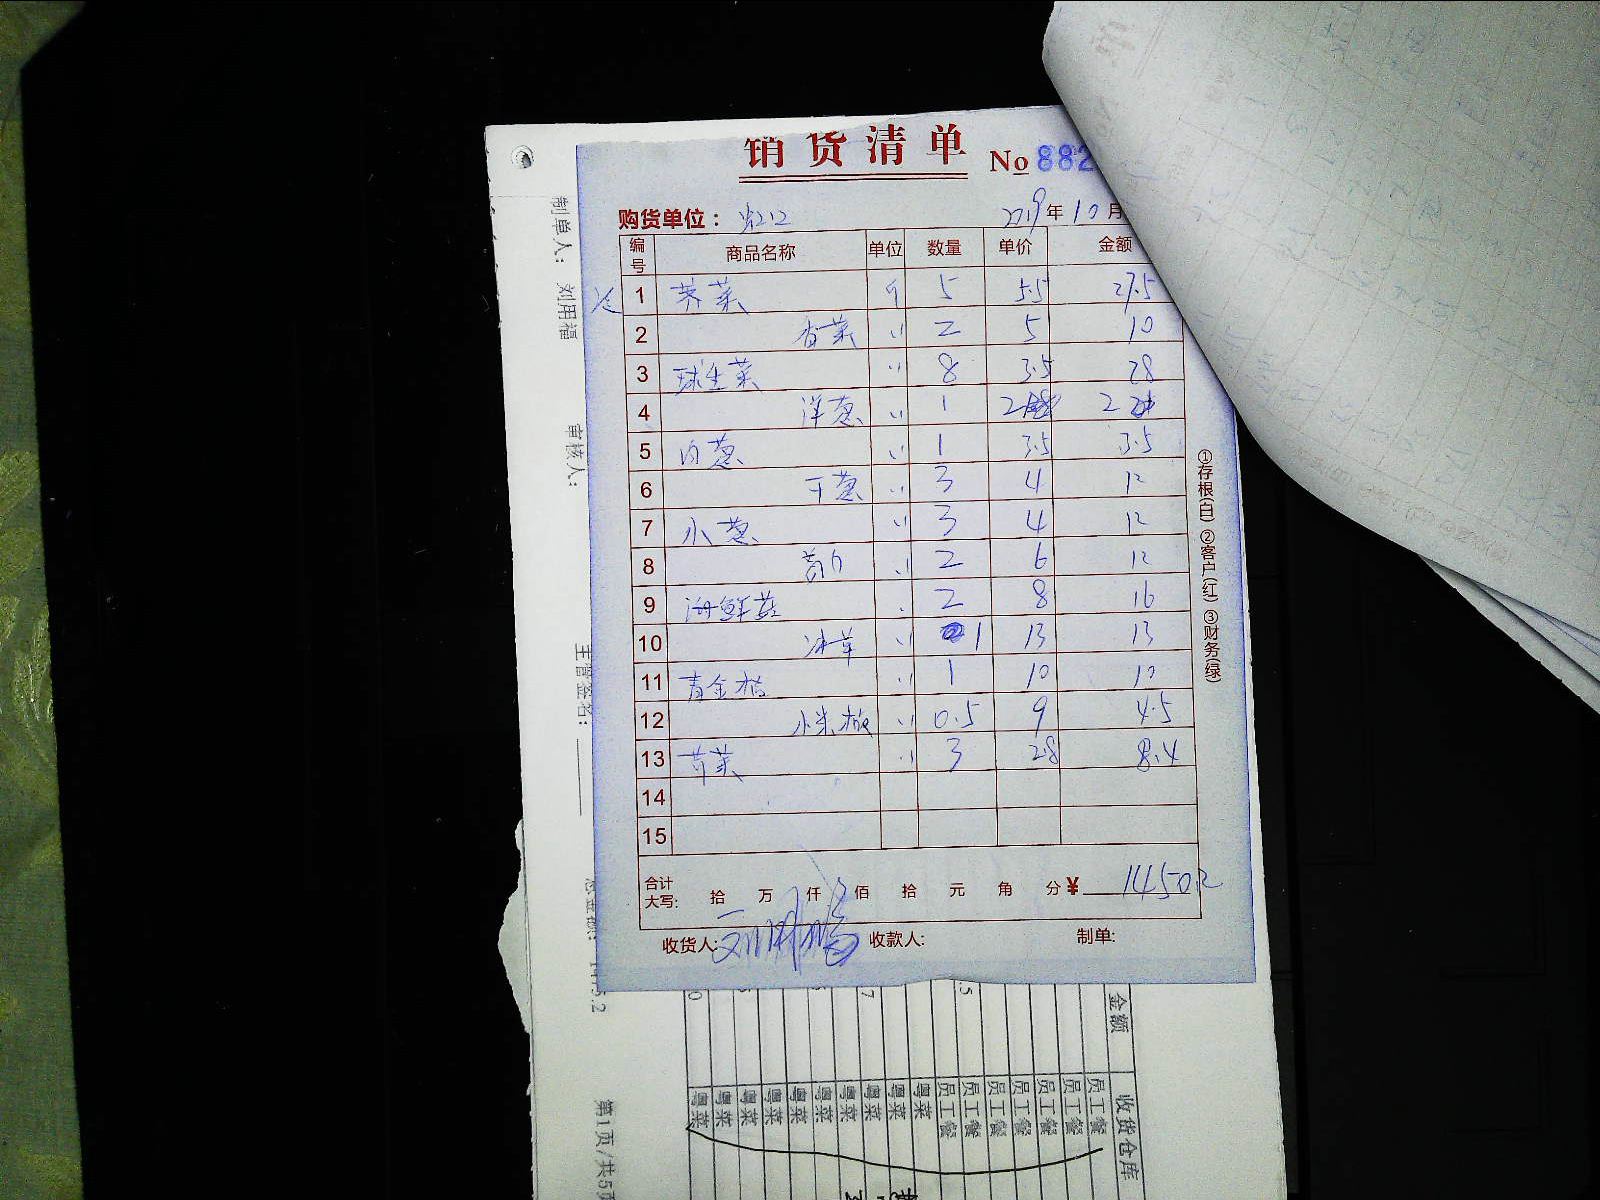 销货清单 No 882
购货单位： 2019年10月
编号 商品名称 单位 数量 单价 金额
1 荠菜 斤 5 5.5 27.5
2 香菜 〃 2 5 10
3 球生菜 〃 8 3.5 28
4 洋葱 〃 1 2 2
5 白葱 〃 1 3.5 3.5
6 干葱 〃 3 4 12
7 小葱 〃 3 4 12
8 〃 2 6 12
9 海鲜菇 〃 2 8 16
10 冰草 〃 1 13 13
11 青金桔 〃 1 10 10
12 小米椒 〃 0.5 9 4.5
13 〃 3 2.8 8.4
14
15
合计大写： 拾 万 仟 佰 拾 元 角 分 ¥
收货人： 收款人： 制单：
①存根(白) ②客户(红) ③财务(绿)
制单人： 刘用福
审核人：
主管签名：
第1页/共5页
金额 收货仓库
员工餐
员工餐
员工餐
员工餐
员工餐
员工餐
员工餐
粤菜
粤菜
粤菜
粤菜
粤菜
粤菜
粤菜
粤菜
粤菜